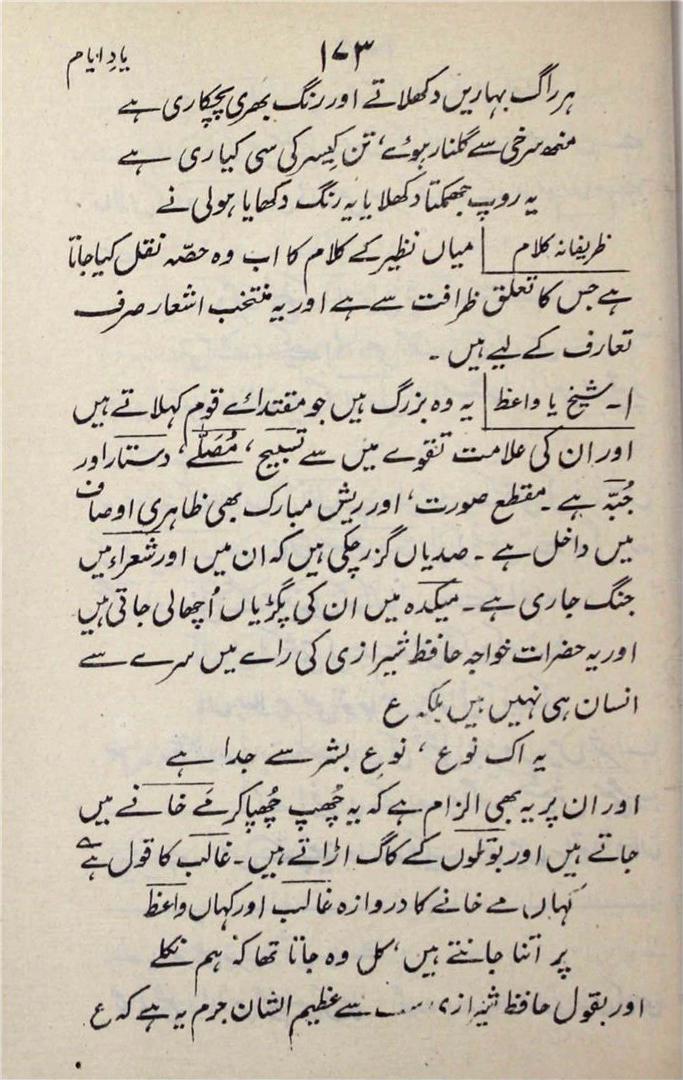 یادِ ایام
۱۷۳
ہر راگ بہاریں دکھلاتے اور رنگ بھری پچکاری ہے
منھ سرخی سے گلنار ہوئے، تن کیسر کی سی کیاری ہے
یہ روپ جھمکتا دکھلایا یہ رنگ دکھایا ہولی نے
ظریفانہ کلام میاں نظیر کے کلام کا اب وہ حصّہ نقل کیا جاتا
ہے جس کا تعلق ظرافت سے ہے اور یہ منتخب اشعار صرف
تعارف کے لیے ہیں ۔
۱۔ شیخ یا واعظ یہ وہ بزرگ ہیں جو مقتدائے قوم کہلاتے ہیں
اور ان کی علامت تقوے میں سے تسبیح، مُصَلّے، دستار اور
جُبّہ ہے ۔ مقطع صورت، اور ریش مبارک بھی ظاہری اوصاف
میں داخل ہے ۔ صدیاں گزر چکی ہیں کہ ان میں اور شعراء میں
جنگ جاری ہے ۔ میکدہ میں ان کی پگڑیاں اُچھالی جاتی ہیں
اور یہ حضرات خواجہ حافظ شیرازی کی رائے میں سرے سے
انسان ہی نہیں ہیں بلکہ ع
یہ اک نوع، نوعِ بشر سے جدا ہے
اور ان پر یہ بھی الزام ہے کہ یہ چُھپ چُھپا کر مے خانے میں
جاتے ہیں اور بوتلوں کے کاگ اڑاتے ہیں ۔ غالب کا قول ہے
کہاں مے خانے کا دروازہ غالب اور کہاں واعظ
پر اتنا جانتے ہیں، کل وہ جاتا تھا کہ ہم نکلے
اور بقول حافظ شیرازی سے عظیم الشان جرم یہ ہے کہ ع